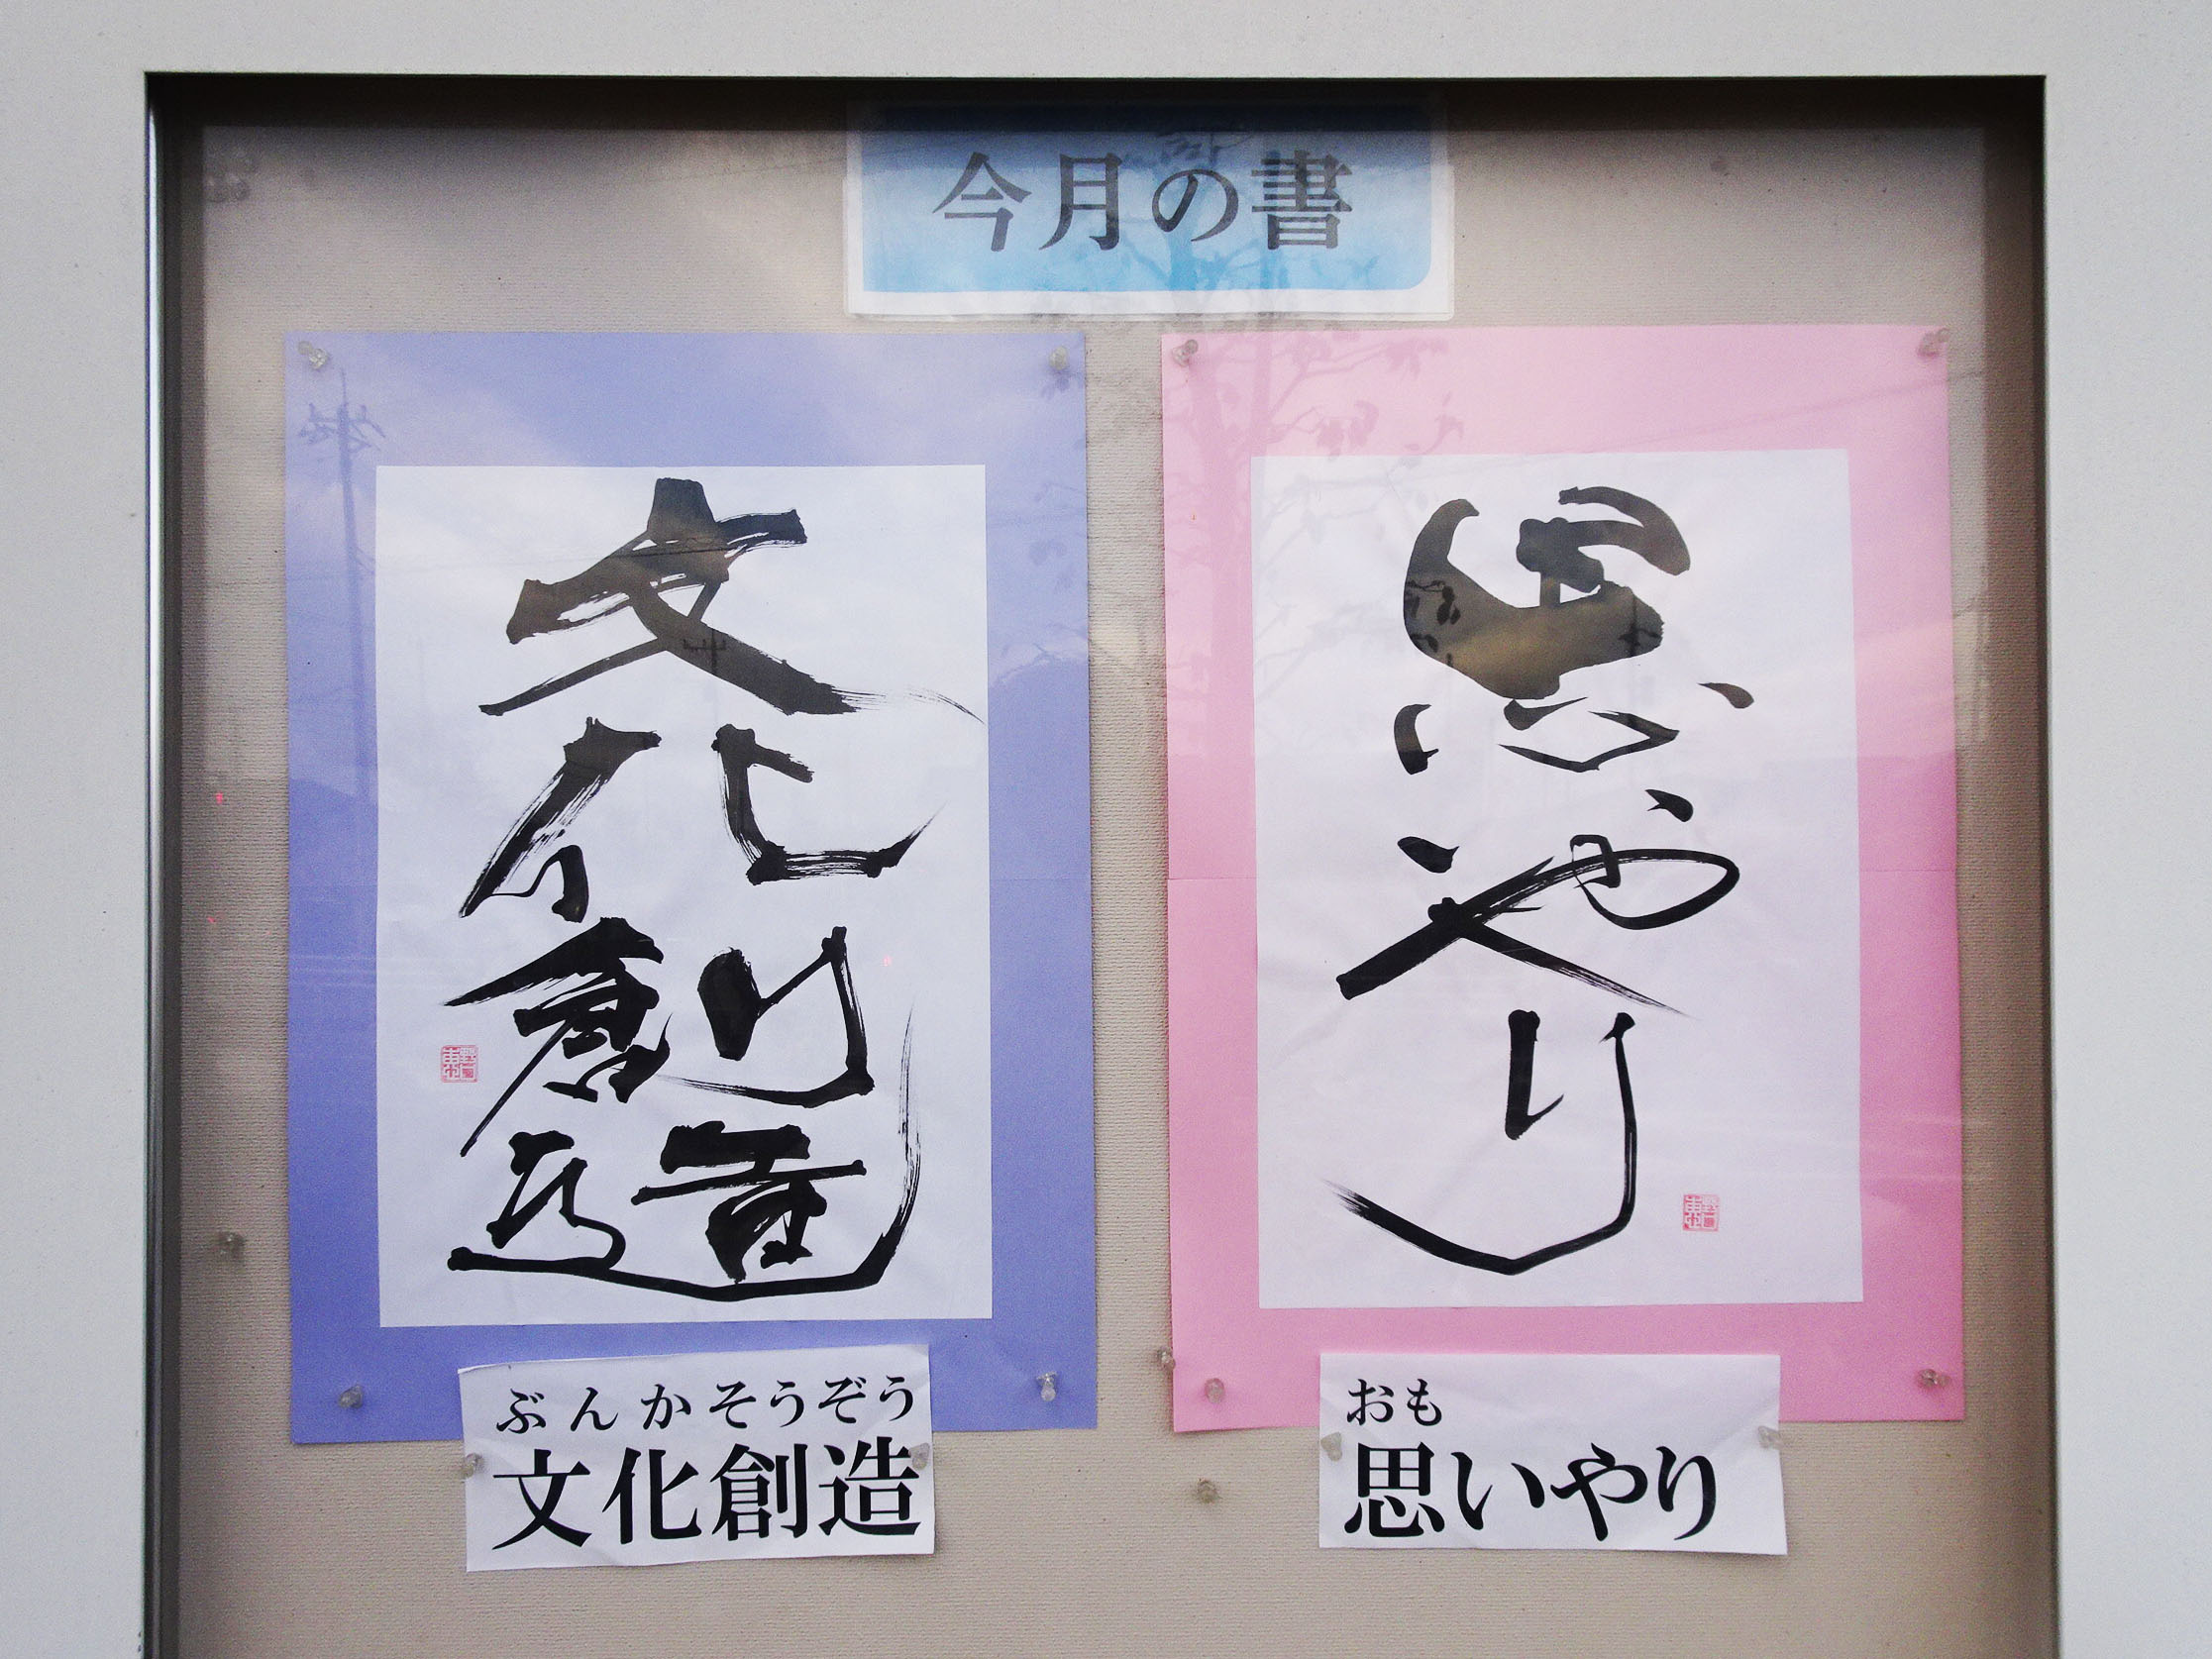 今月の書
文化創造
ぶんかそうぞう
文化創造
思いやり
おも
思いやり